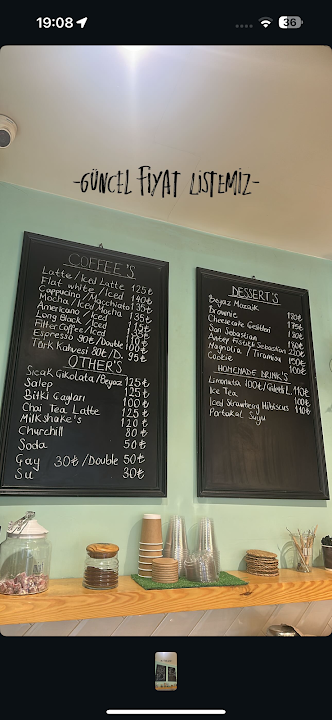 19:08
36
-GÜNCEL FİYAT LİSTEMİZ-
COFFEE'S
Latte/Iced Latte 125₺
Flat white/Iced 140₺
Cappucino/Macchiato 135₺
Mocha/Iced Mocha 135₺
Americano/Iced
Long Black/Iced
Filter Coffee/Iced
Espresso 90₺/Double 100₺
Türk Kahvesi 80₺/D. 95₺
OTHERS
Sıcak Çikolata/Beyaz 125₺
Salep 125₺
Bitki Çayları 100₺
Chai Tea Latte 125₺
Milkshake's 120₺
Churchill 80₺
Soda 50₺
Çay 30₺/Double 50₺
Su 30₺
DESSERT'S
Beyaz Mozaik
Brownie
Cheesecake Çeşitleri
San Sebastian
Antep Fıstıklı Sebastian
Magnolia / Tiramisu
Cookie
HOMEMADE DRINK'S
Limonata 100₺/
Ice Tea
Iced Strawberry Hibiscus 110₺
Portakal Suyu